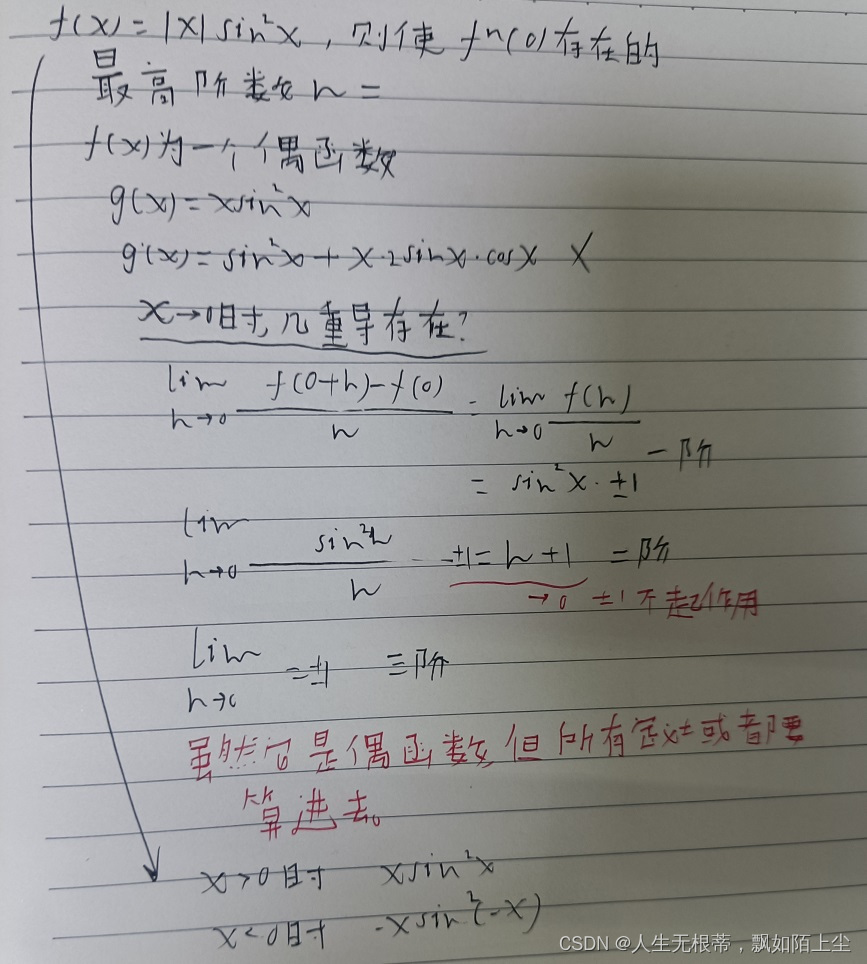 f(x)=|x|sin²x，则使 fⁿ(0)存在的
最高阶数n=
f(x)为一个偶函数
g(x)=xsin²x
g'(x)=sin²x+x·2sinx·cosx X
x→0时,几重导存在?
lim h→0 f(0+h)-f(0)/h = lim h→0 f(h)/h 一阶
= sin²x·±1
lim h→0 sin²h/h ·±1=h+1 =阶
→0 ±1不起作用
lim h→0 =±1 三阶
虽然它是偶函数但所有定义域都要
算进去。
x<0时 xsin²x
x>0时 -xsin²(-x)
CSDN @人生无根蒂，飘如陌上尘